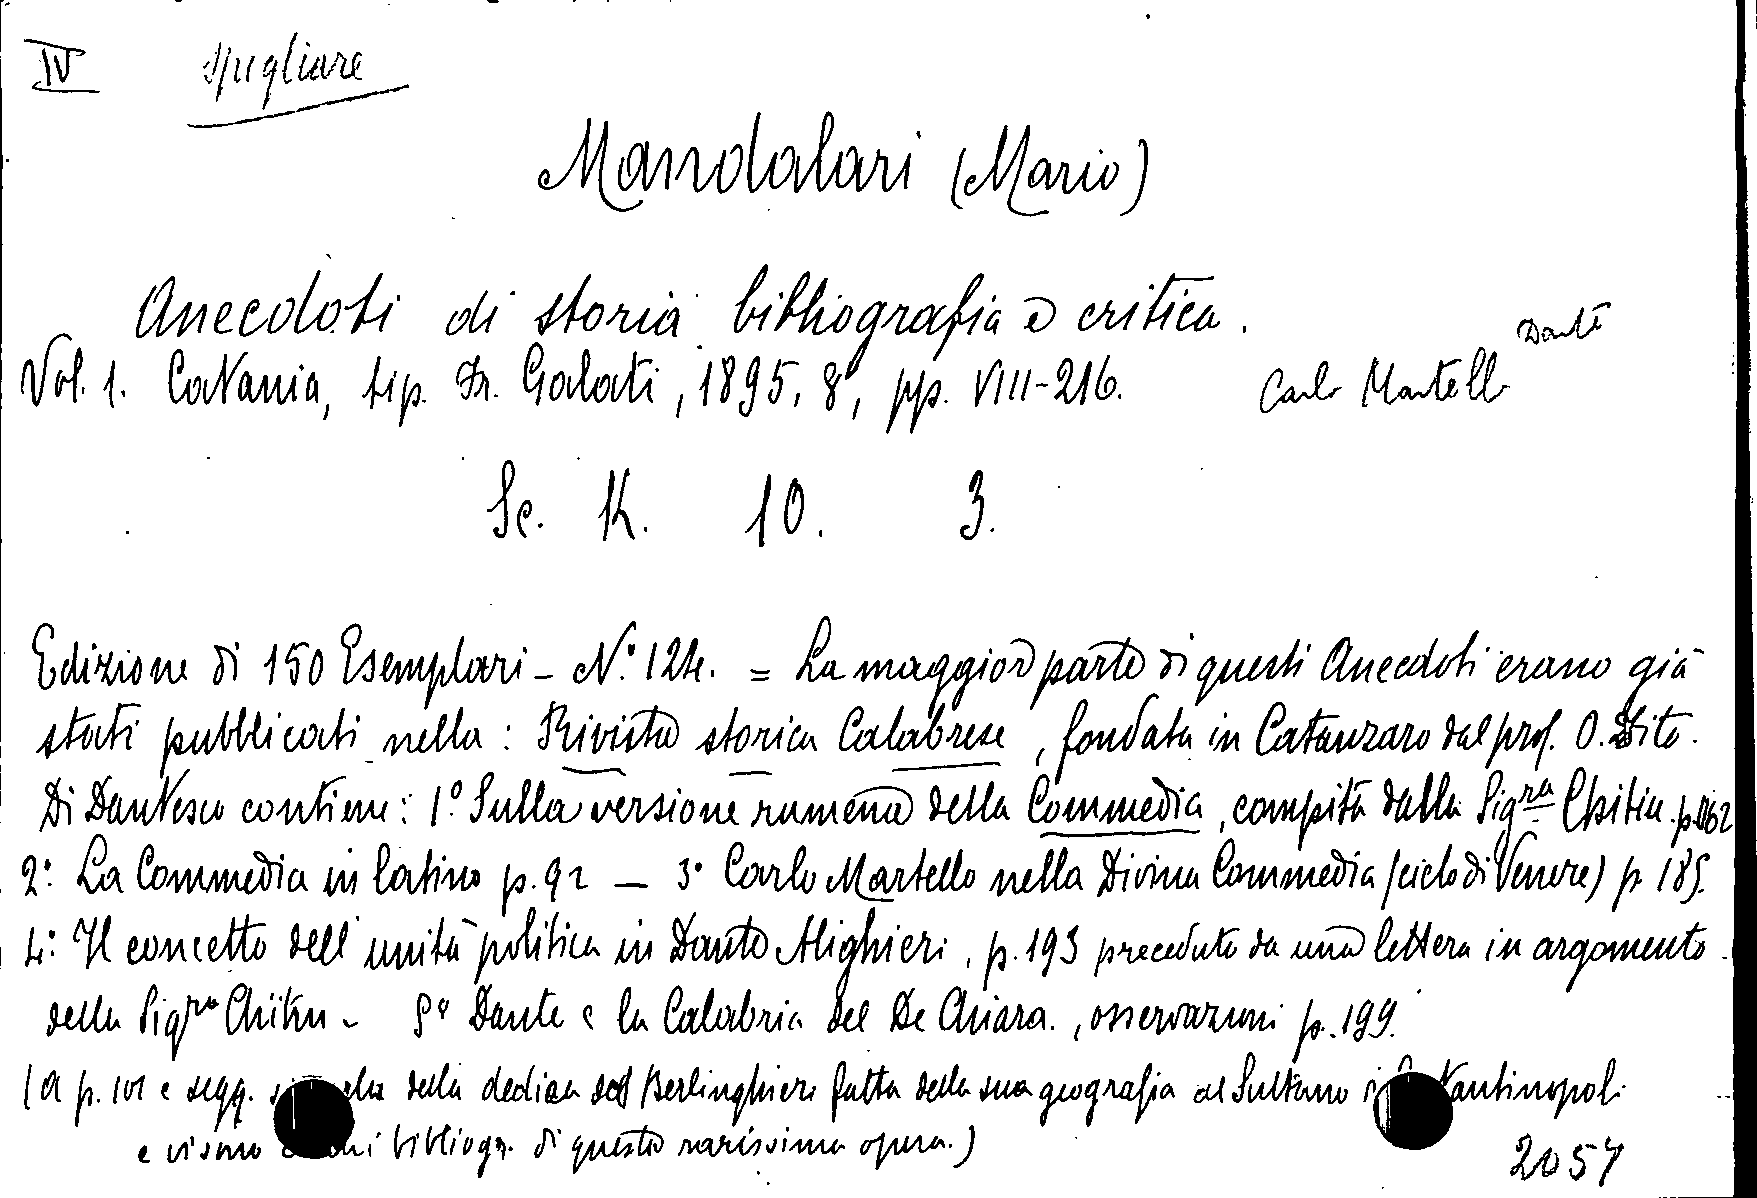 IV spogliare
Mandalari (Mario)
Anecdoti di storia bibliografia e critica.
Dante
Vol. 1. Catania, tip. Fr. Galati, 1895, 8°, pp. VIII-216. Carlo Martello
Sc. K. 10. 3.
Edizione di 150 Esemplari - N.° 124. = La maggior parte di questi Anecdoti erano già
stati pubblicati nella: Rivista storica Calabrese, fondata in Catanzaro dal prof. O. Dito.
Di Dantesco contiene: 1.° Sulla versione rumena della Commedia, compita dalla Sigra Chitiu. p. 62
2.° La Commedia in latino p. 92 - 3° Carlo Martello nella Divina Commedia (cielo di Venere) p. 185.
4.° Il concetto dell'unità politica in Dante Alighieri, p. 193 preceduto da una lettera in argomento
della Sigra Chitiu - 5° Dante e la Calabria del De Chiara., osservazioni p. 199.
(A p. 101 e segg. della dedica del Berlinghieri fatta della sua geografia al Sultano
e vi sono bibliogr. di questa rarissima opera.)
2057